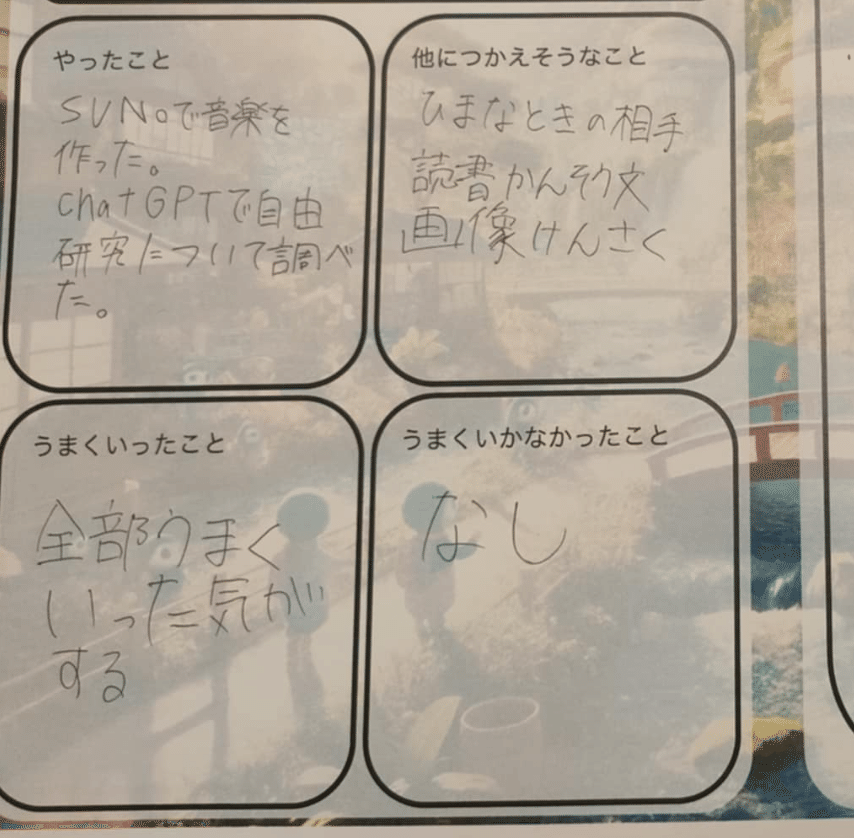 やったこと
SUNOで音楽を
作った。
chatGPTで自由
研究について調べ
た。
他につかえそうなこと
ひまなときの相手
読書かんそう文
画像けんさく
うまくいったこと
全部うまく
いった気が
する
うまくいかなかったこと
なし